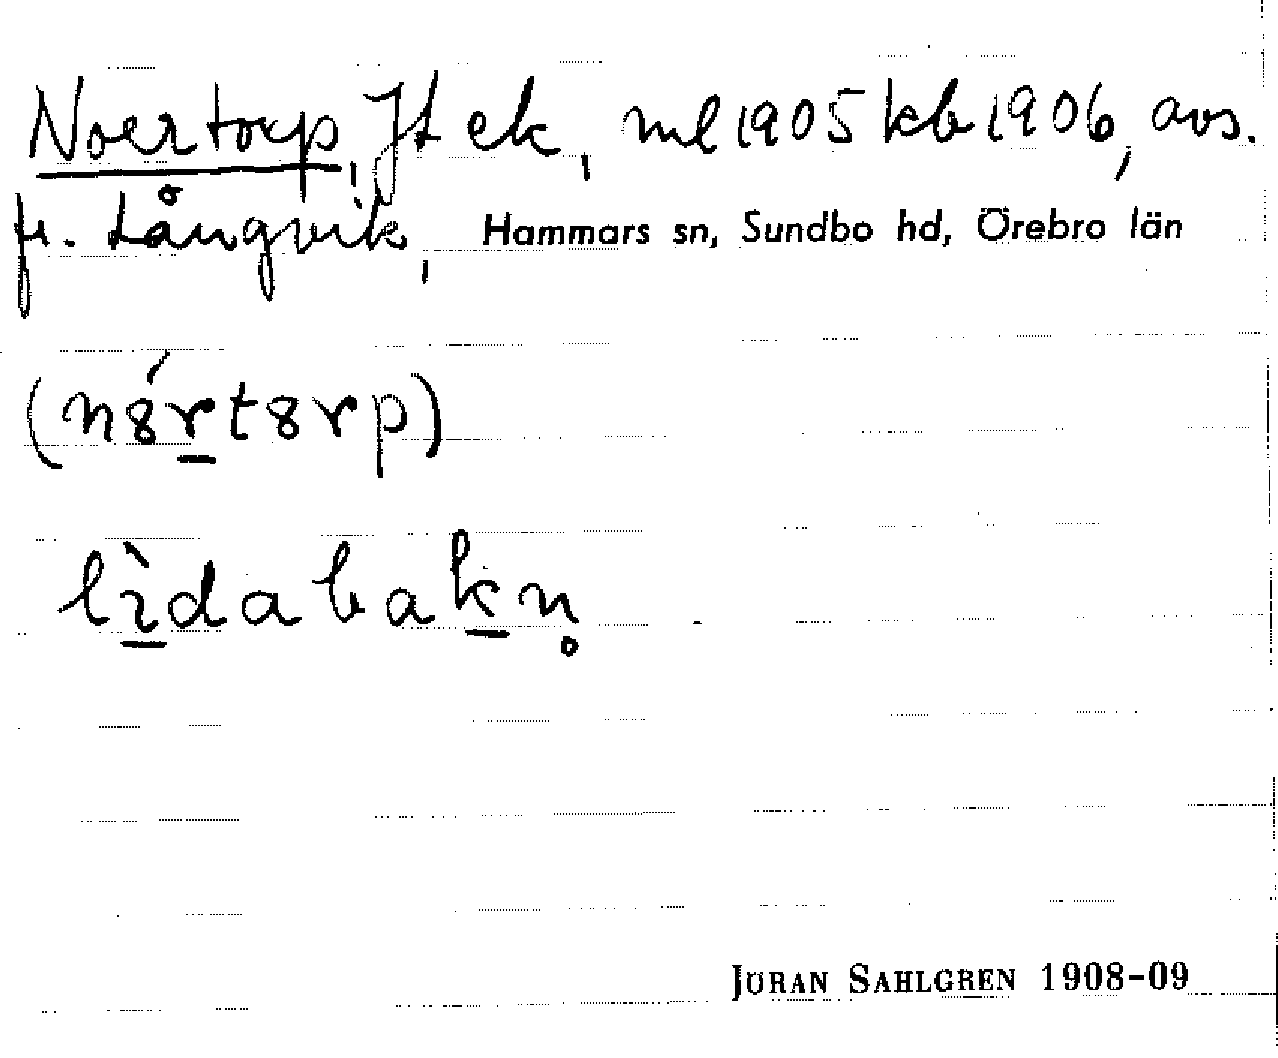 Noertorp, Jt ek, ml 1905 kb 1906, avs.
fr. Långvik, Hammars sn, Sundbo hd, Örebro län
(n8́rt8rp)
lìdabakn̥
JÖRAN SAHLGREN 1908-09